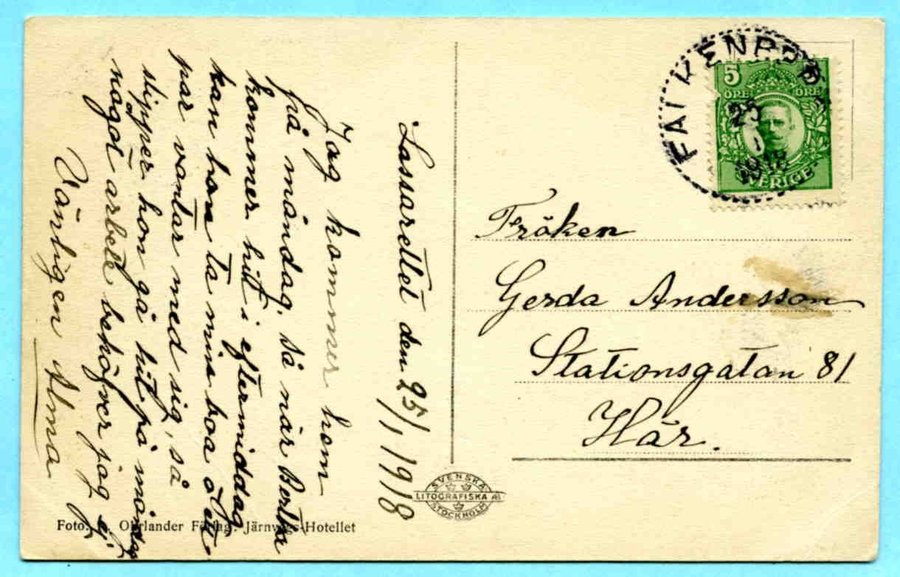 Lasarettet den 25/1 1918
Jag kommer hem
på måndag, så när Berta
kommer hit i eftermiddag
kan hon ta mina boa o ett
par vantar med sig, så
slipper hon gå hit på måndag
något arbete behöfver jag ej
Vänligen Alma
FALKENBERG
25
1
1918
5 5
ÖRE ÖRE
SVERIGE
Fröken
Gerda Andersson
Stationsgatan 81
Här.
SVENSKA
LITOGRAFISKA AB
STOCKHOLM
Foto. Ohrlander Förlag. Järnvägs-Hotellet